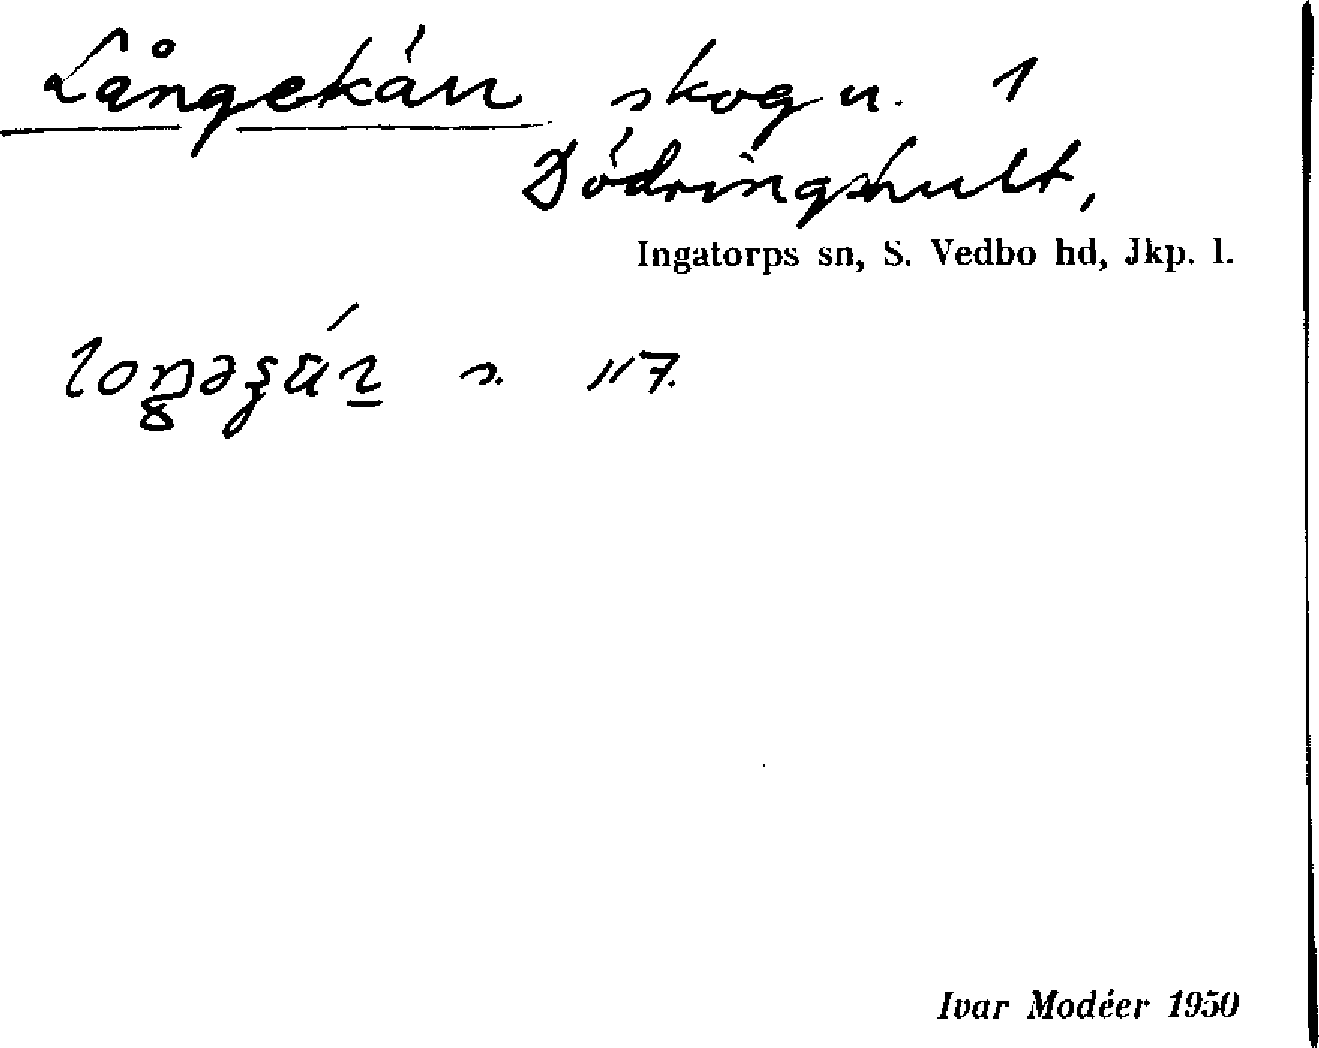 Långekärr skogn. 1
Dödringshult,
Ingatorps sn, S. Vedbo hd, Jkp. l.
s. 117.
Ivar Modéer 1950